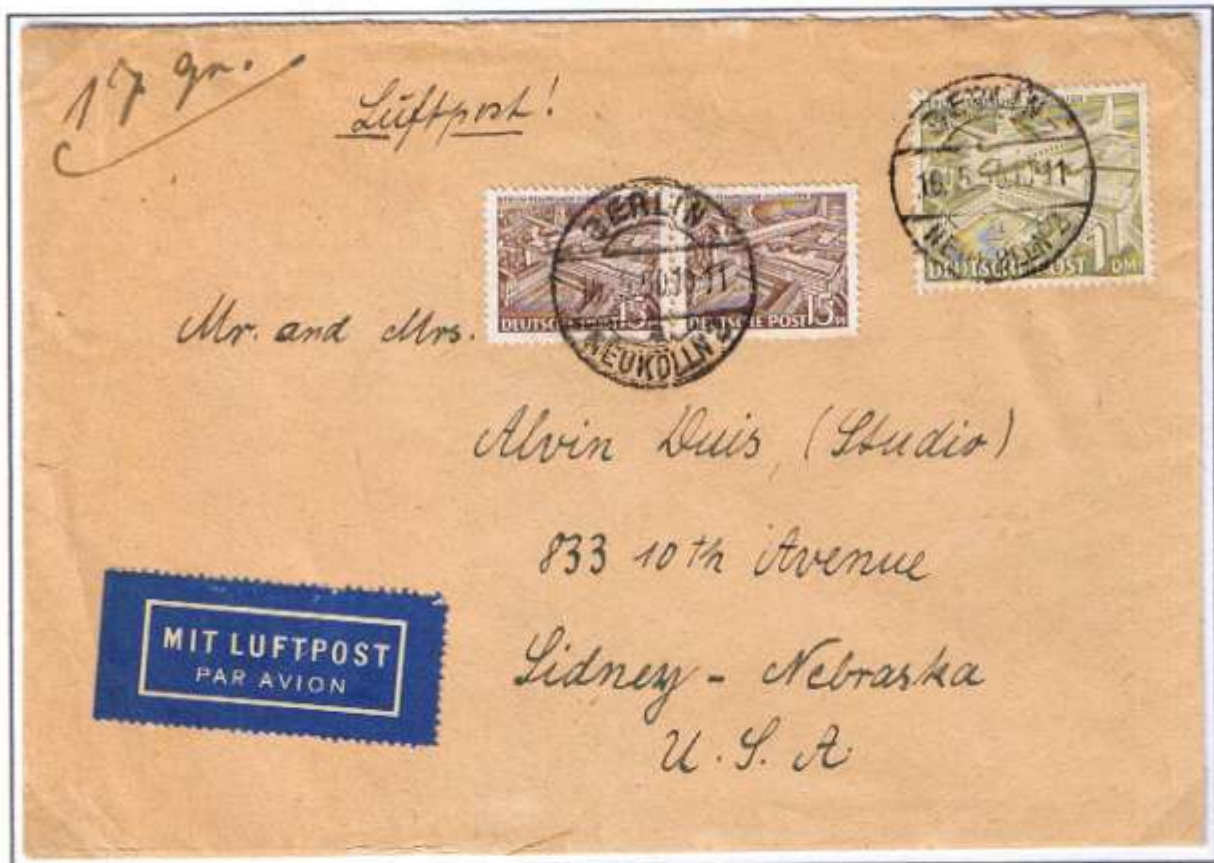 17 gr.
Luftpost!
BERLIN
NEUKÖLLN 2
DEUTSCHE POST 1 DM
BERLIN
NEUKÖLLN 2
DEUTSCHE POST 15
DEUTSCHE POST 15 Pf
Mr. and Mrs.
Alvin Duis, (Studio)
833 10th Avenue
Sidney - Nebraska
U. S. A.
MIT LUFTPOST
PAR AVION